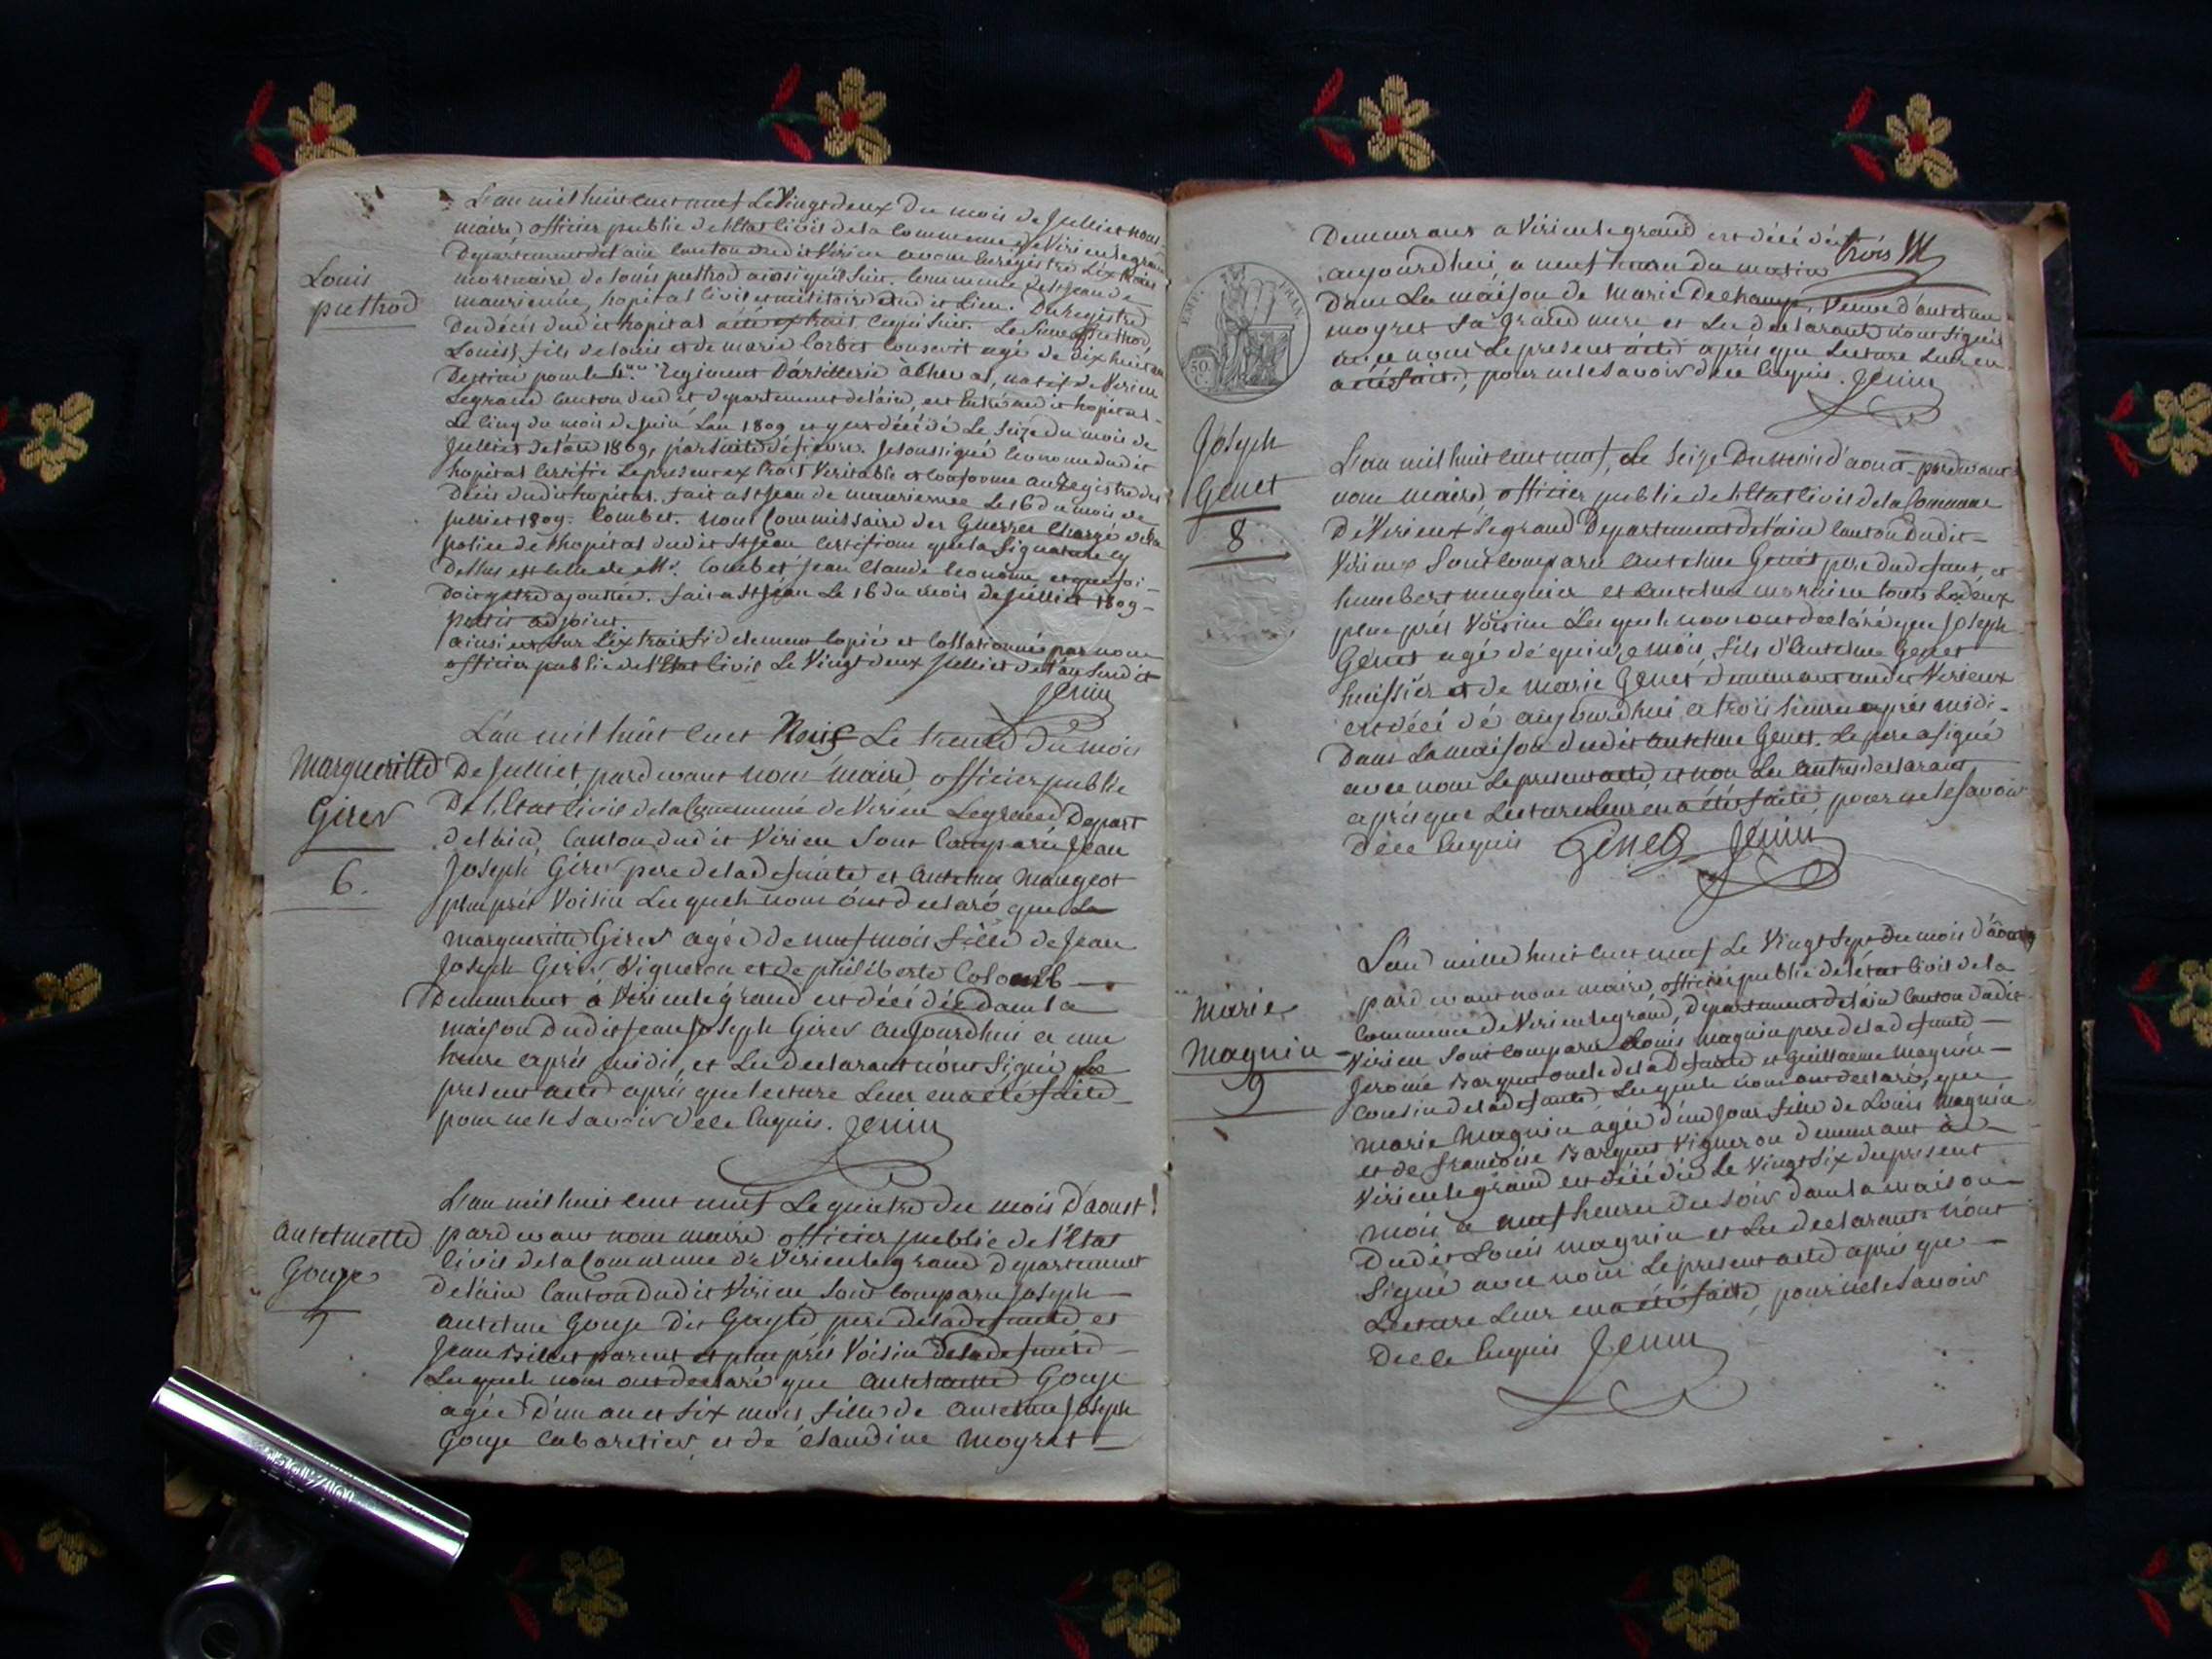 L'an mil huit cent neuf Le Vingt deux du mois de Juillet nous
maire officier public de l'Etat Civil de la Commune de Virieu le grand
Departement de l'ain Canton dudit Virieu avons Enregistré L'Extrait
mortuaire de Louis prettrod ainsi qu'il suit. Commune de St Jean de
maurienne, hopital civil et militaire dudit Lieu. Du Registre
Des décès dudit hopital a été extrait ce qui suit. Le Sieur prettrod
Louis fils de Louis et de marie Corbet Conscrit agé de dix huit ans
Destiné pour le Regiment D'artillerie à Cheval, natif de Virieu
Legrand Canton dudit departement de l'ain, est Entré audit hopital
Le Cinq du mois de Juin L'an 1809 et y est décédé Le Seize du mois de
Juillet de l'an 1809, par suite de fievres. Je soussigné Econome dudit
hopital Certifie Le present extrait Veritable et Conforme au Registre des
Décès dudit hopital. fait a St Jean de maurienne Le 16 du mois de
Juillet 1809. Combet. nous Commissaire des Guerres Chargé de la
police de l'hopital dudit St Jean Certifions que la Signature cy
Dessus est celle de Mr. Combet Jean Claude Econome et que foi
Doit y etre ajoutée. fait a St Jean Le 16 du mois de Juillet 1809
adjoint.
ainsi est sur L'Extrait fidelement Copié et Collationné par nous
officier public de l'Etat Civil Le Vingt deux Juillet de l'an Susdit
Jenin
Louis
prettrod
L'an mil huit cent Neuf Le trente du mois
De Juillet, pardevant nous maire, officier public
De l'Etat Civil de la Commune de Virieu Legrand Depart
de l'ain, Canton dudit Virieu sont Comparu Jean
Joseph Girer pere de la defunte et Antelme Maugeot
plus prés Voisin Lesquels nous ont declaré que La
Margueritte Girer agée de neuf mois fille de Jean
Joseph Girer Vigneron et de philiberte Colomb
Demeurant à Virieu le grand est décédée dans la
maison Dudit Jean Joseph Girer Aujourdhui a une
heure aprés midi, et Les declarant n'ont Signé Le
present acte aprés que lecture Leur en a été faite
pour ne le savoir de ce Enquis. Jenin
Margueritte
Girer
6.
L'an mil huit cent neuf Le quatre du mois d'aoust
pardevant nous maire officier public de l'Etat
Civil de la Commune de Virieu le grand Departement
de l'ain Canton dudit Virieu sont Comparu Joseph
antelme Gouje Dit Guyte pere de la defunte et
Jean Billiet parent et plus prés Voisin de la defunte
Lesquels nous ont declaré que antelmette Gouje
agée D'un an et Six mois fille de Antelme Joseph
Gouje Cabaretier, et de claudine Moyret
antelmette
Gouje
7
Demeurant a Virieu le grand est décédée
trois
aujourdhui a neuf heures du matin
Dans La maison de Marie Dechamp, Veuve d'antelme
moyret Sa Grand mere et Les declarants n'ont signés
avec nous Le present acte aprés que Lecture Leur en
a été faite, pour ne le savoir de ce Enquis. Jenin
EMP. FRAN.
50. C.
L'an mil huit cent neuf, Le Seize Du mois d'aoust pardevant
nous maire, officier public de l'Etat Civil de la Commune
De Virieux Legrand Departement de l'ain Canton Dudit
Virieux Sont Comparu Antelme Genet pere du defunt, et
humbert mugnier et Antelme moraine touts Lesdeux
plus prés Voisins Lesquels nous ont declaré que Joseph
Genet agé de quinze mois, fils d'Antelme Genet
huissier et de Marie Genet demeurant audit Virieux
est décédé aujourdhui a trois heures aprés midi
Dans La maison dudit Antelme Genet. Le pere a signé
avec nous Le present acte, et non Les autres declarant
aprés que Lecture leur en a été faite, pour ne le savoir
de ce Enquis Genet Jenin
Joseph
Genet
8.
L'an mille huit cent neuf Le Vingt Sept du mois d'aoust
pardevant nous maire, officier public de l'état Civil de la
Commune de Virieu le grand, Departement de l'ain Canton dudit
Virieu Sont Comparu Louis Magnin pere de la defunte
Jerome Barquet oncle de la defunte et Guillaume Magnin
Cousin de la defunte, Lesquels nous ont declaré, que
Marie Magnin agée d'un Jour fille de Louis Magnin
et de françoise Barquet Vigneron demeurant à
Virieu le grand est décédée Le Vingt Six du present
mois a neuf heures du soir dans la maison
Dudit Louis Magnin et Les declarants n'ont
Signé avec nous Le present acte aprés que
Lecture Leur en a été faite, pour ne le savoir
De ce Enquis Jenin
Marie
Magnin
9